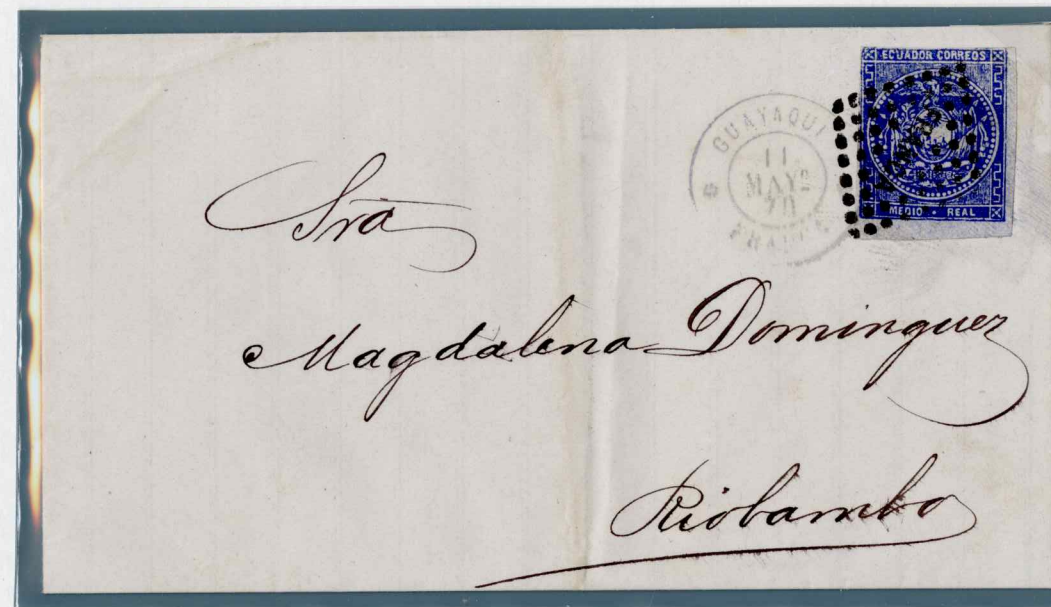 ECUADOR CORREOS
MEDIO · REAL
GUAYAQUI
11
MAYO
Sra
Magdalena Dominguez
Riobamba